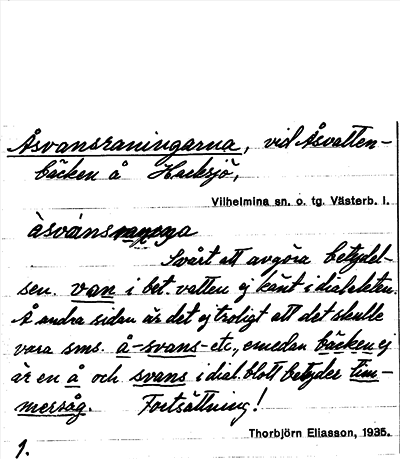 Åsvansraningarna, vid Åsvatten-
bäcken å Hacksjö,
Vilhelmina sn. o. tg. Västerb. l.
Svårt att avgöra betydel-
sen. van i bet. vatten ej känt i dialekten.
Å andra sidan är det ej troligt att det skulle
vara sms. å-svans-etc., emedan bäcken ej
är en å och svans i dial. blott betyder tim-
mersåg. Fortsättning!
Thorbjörn Eliasson, 1935.
1.